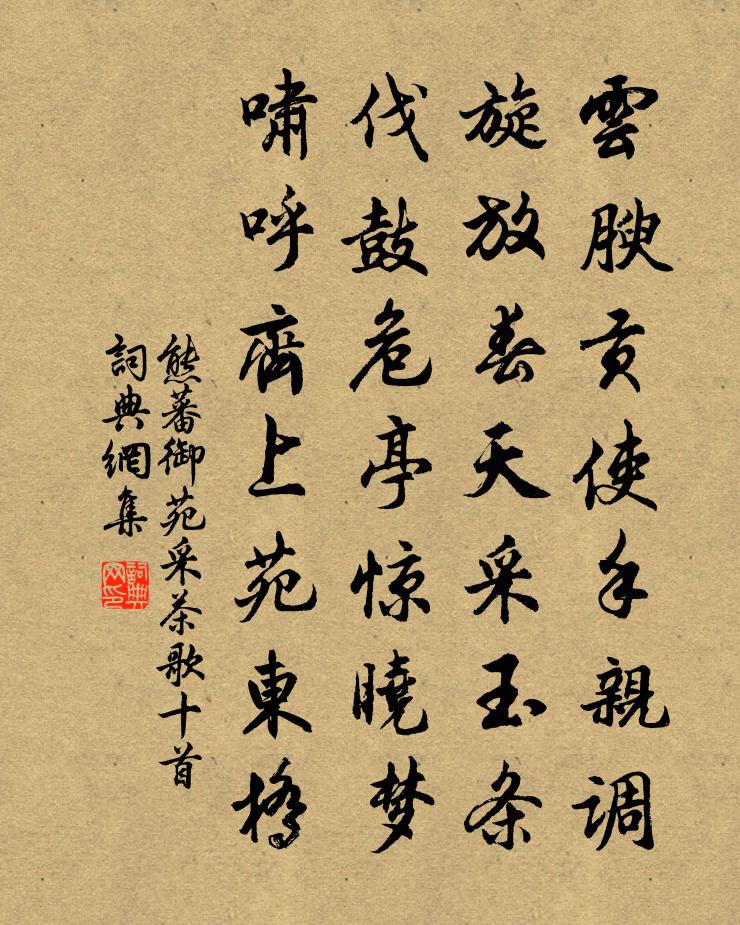 雲腴貢使手親調
旋放春天采玉条
伐鼓危亭惊曉梦
嘯呼齊上苑東橋
熊蕃御苑采茶歌十首
詞典網集
詞典网印